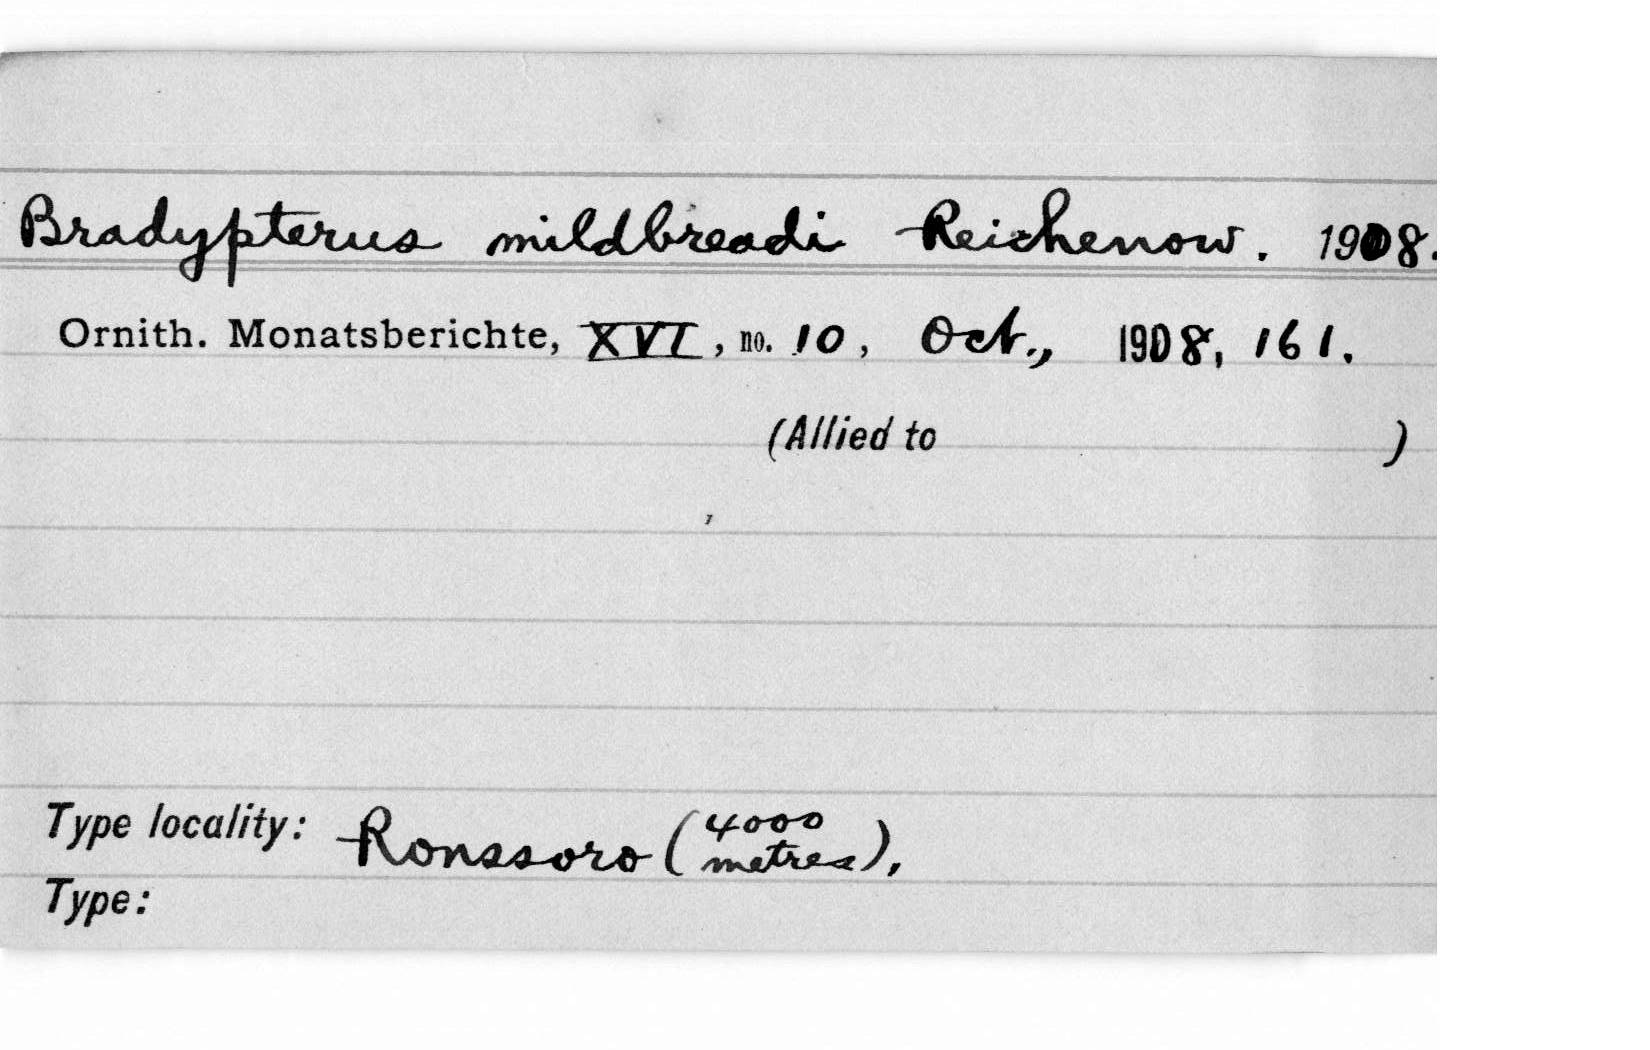 Bradypterus mildbreadi Reichenow. 1908.
Ornith. Monatsberichte, XVI, no. 10, Oct., 1908, 161.
(Allied to )
Type locality: Ronssoro (4000 metres),
Type: